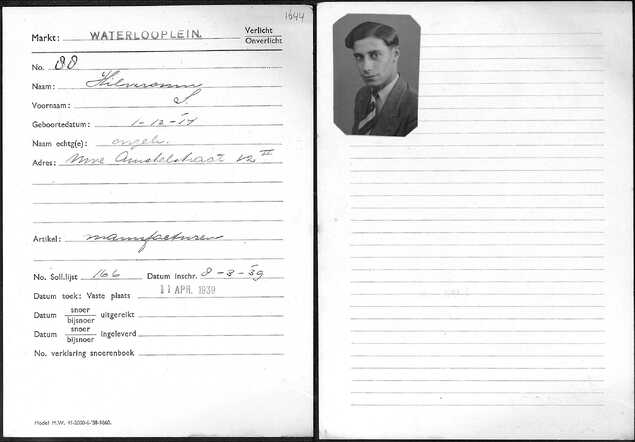 1644
Markt: WATERLOOPLEIN. Verlicht
Onverlicht
No. 88
Naam: Hilversum
Voornaam: S
Geboortedatum: 1-12-17
Naam echtg(e): ongeh.
Adres: Nwe Amstelstraat 12 II
Artikel: manufacturen
No. Soll.lijst 166 Datum inschr. 8-3-39
Datum toek: Vaste plaats 11 APR. 1939
Datum snoer uitgereikt
bijsnoer
Datum snoer ingeleverd
bijsnoer
No. verklaring snoerenboek
Model M.W.